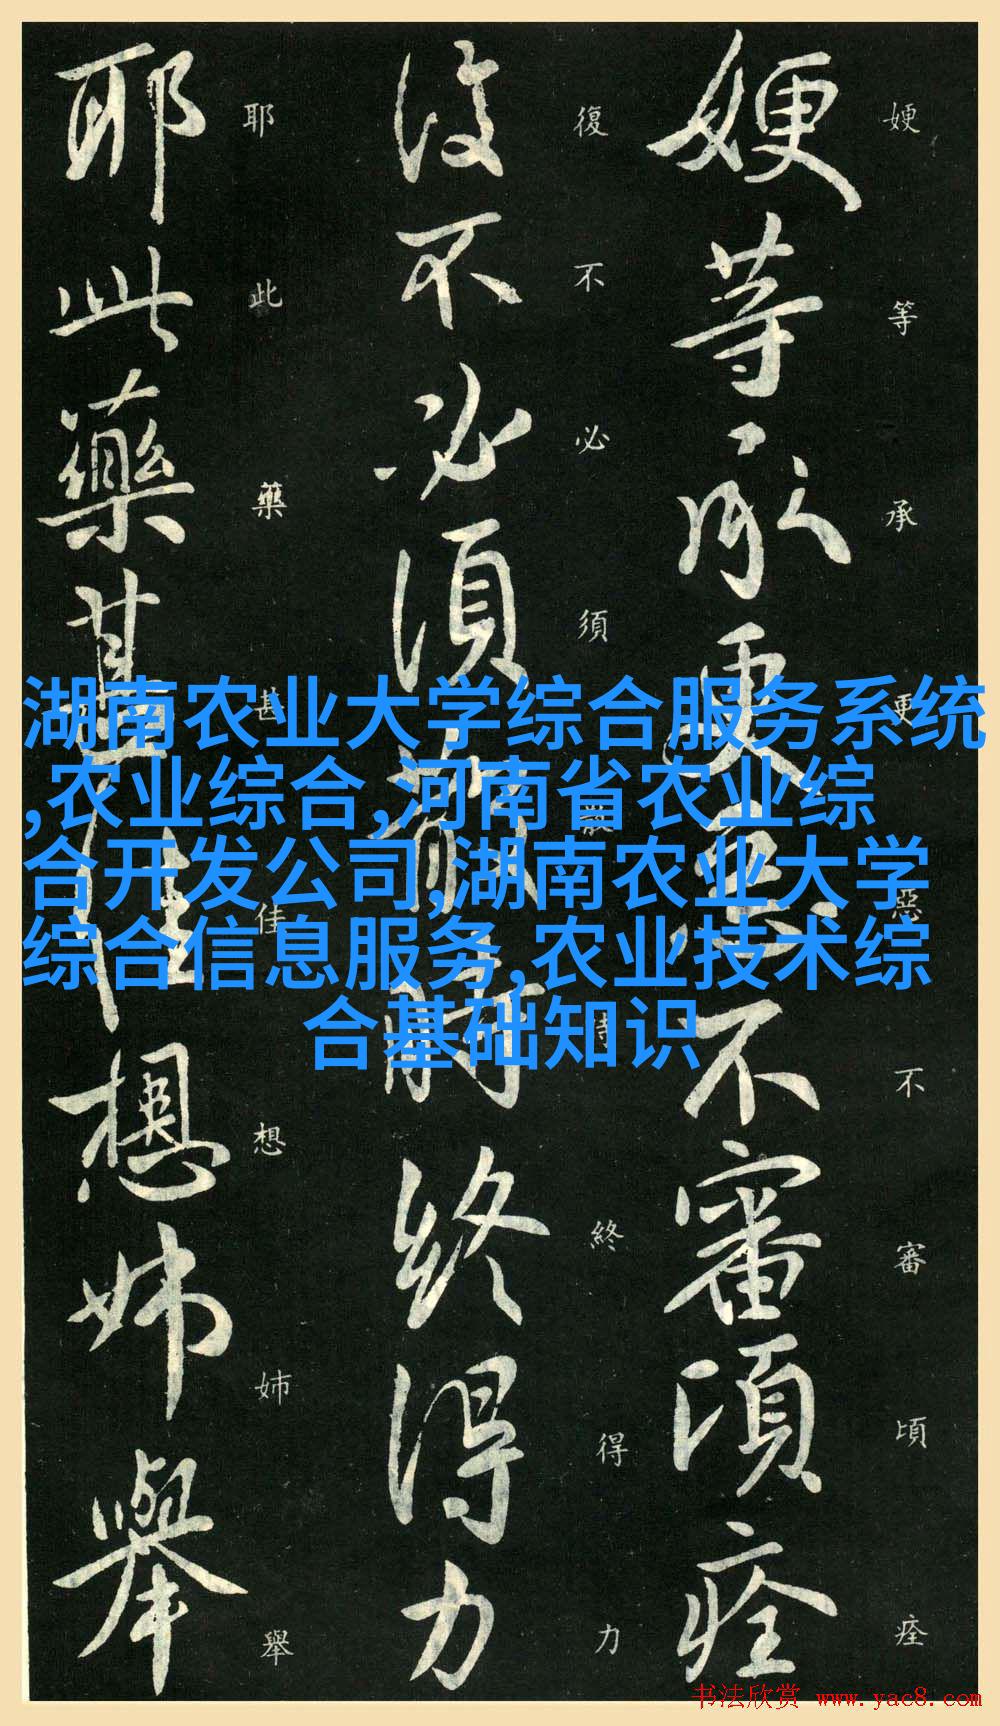 㛐等承更惡不審頃痊
㛐等承更惡不審頃痊
復不必須散時終得力
復不必須散時終得力
耶此藥甚佳想姊舉
耶此藥甚佳想姊舉
湖南农业大学综合服务系统
,农业综合,河南省农业综
合开发公司,湖南农业大学
综合信息服务,农业技术综
合基础知识
书法欣赏 www.yac8.com